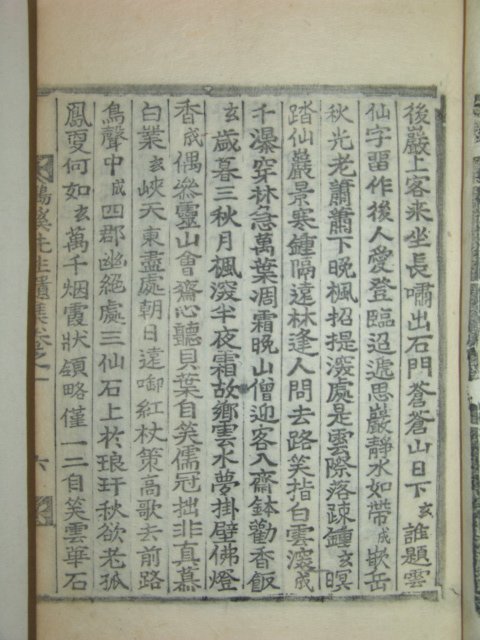 後巖上客來坐長嘯出石門蒼蒼山日下玄誰題雲
仙字留作後人愛登臨迢遞思巖靜水如帶成嵌岳
秋光老蕭蕭下晚楓招提深處是雲際落疎鍾玄暝
踏仙巖景寒鍾隔遠林逢人問去路笑指白雲深成
千瀑穿林急萬葉凋霜晚山僧迎客入齋鉢勸香飯
玄歲暮三秋月楓深半夜霜故鄉雲水夢掛壁佛燈
香成偶參靈山會齋心聽貝葉自笑儒冠拙非真慕
白業玄峽天東盡處朝日遠啣紅杖策高歌去前路
鳥聲中成四郡幽絕處三仙石上於琅玕秋欲老孤
鳳更何如玄萬千烟霞狀領略僅一二自笑雲華石
溪先生遺集卷之一
六